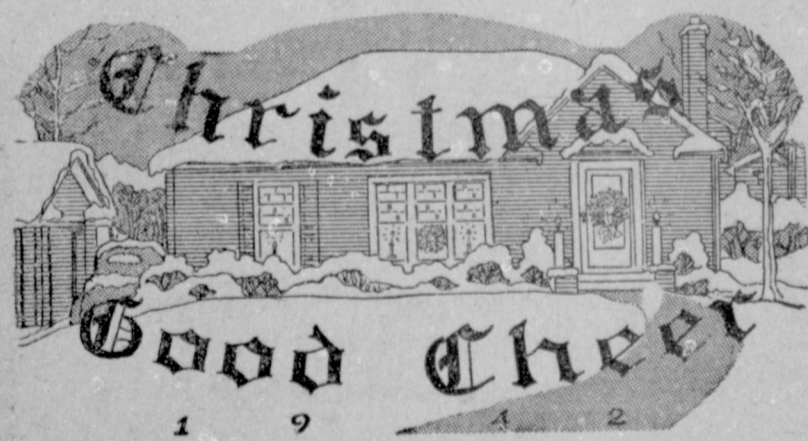 Christmas
Good Cheer
1942